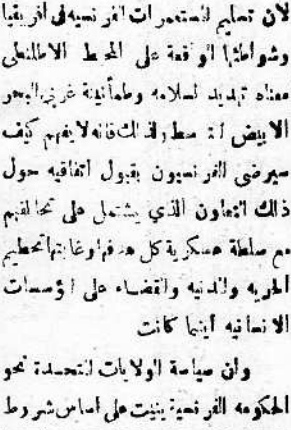 لان تسليم المستعمرات الفرنسيه في افريقيا
وشواطئها الواقعة على المحيط الاطلنطي
معناه تهديد للسلامه وطمأنينة غربي البحر
الابيض المتوسط ولذلك فانه لا يفهم كيف
سيرضى الفرنسيون بقبول اتفاقيه حول
ذلك التعاون الذي يشتمل على تحالفهم
مع سلطة عسكرية كل هدفها وغايتها تحطيم
الحريه والمدنيه والقضاء على المؤسسات
الانسانيه أينما كانت
وان سياسة الولايات المتحدة نحو
الحكومه الفرنسية بنيت على اساس شروط